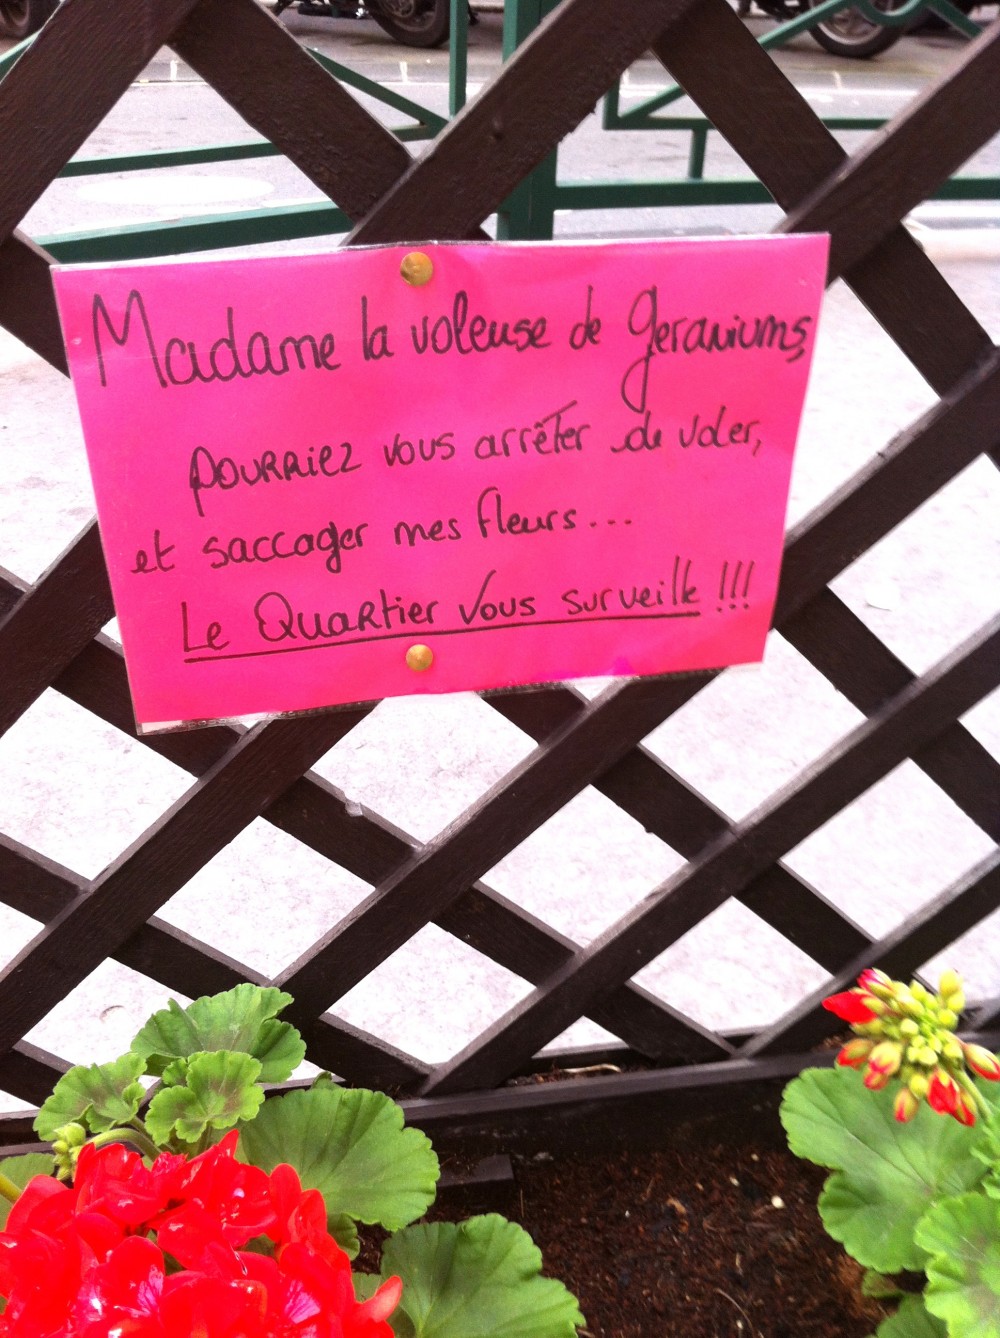 Madame la voleuse de geraniums,
pourriez vous arrêter de voler,
et saccager mes fleurs...
Le Quartier Vous surveille !!!